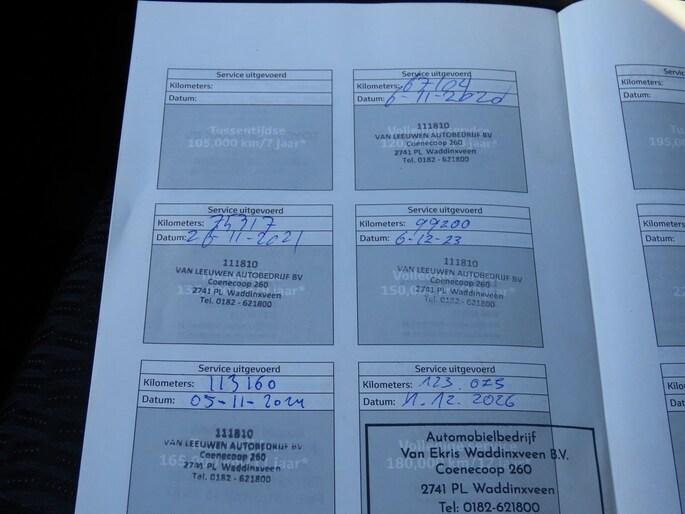 Service uitgevoerd
Kilometers:
Datum:
Tussentijdse
105.000 km/7 jaar*
Service uitgevoerd
Kilometers: 67104
Datum: 6-11-2020
111810
VAN LEEUWEN AUTOBEDRIJF BV
Coenecoop 260
2741 PL Waddinxveen
Tel. 0182 - 621800
Service uitgevoerd
Kilometers: 75317
Datum: 26-11-2021
111810
VAN LEEUWEN AUTOBEDRIJF BV
Coenecoop 260
2741 PL Waddinxveen
Tel. 0182 - 621800
Service uitgevoerd
Kilometers: 99200
Datum: 6-12-23
111810
VAN LEEUWEN AUTOBEDRIJF BV
Coenecoop 260
2741 PL Waddinxveen
Tel. 0182 - 621800
Service uitgevoerd
Kilometers: 113160
Datum: 05-11-2024
111810
VAN LEEUWEN AUTOBEDRIJF BV
Coenecoop 260
2741 PL Waddinxveen
Tel. 0182 - 621800
Service uitgevoerd
Kilometers: 123.075
Datum: 11.12.2026
Automobielbedrijf
Van Ekris Waddinxveen B.V.
Coenecoop 260
2741 PL Waddinxveen
Tel: 0182-621800
Kilometers:
Datum:
195.0
Kilometers:
Datum:
Kilometers:
Datum: